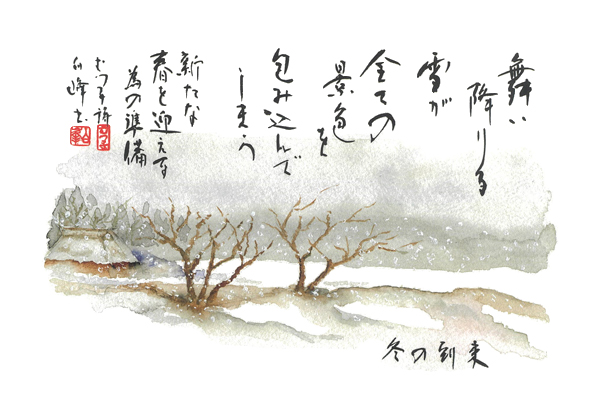 舞い
降りる
雪が
全ての
景色を
包み込んで
しまう
新たな
春を迎える
為の準備
冬の到来